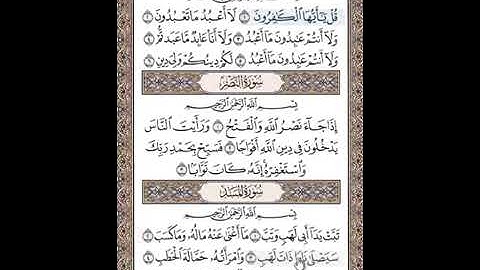 قُلْ يَٰٓأَيُّهَا ٱلْكَٰفِرُونَ ١ لَآ أَعْبُدُ مَا تَعْبُدُونَ ٢
وَلَآ أَنتُمْ عَٰبِدُونَ مَآ أَعْبُدُ ٣ وَلَآ أَنَا۠ عَابِدٌ مَّا عَبَدتُّمْ ٤
وَلَآ أَنتُمْ عَٰبِدُونَ مَآ أَعْبُدُ ٥ لَكُمْ دِينُكُمْ وَلِىَ دِينِ ٦
سُورَةُ النَّصْرِ
بِسْمِ ٱللَّهِ ٱلرَّحْمَٰنِ ٱلرَّحِيمِ
إِذَا جَآءَ نَصْرُ ٱللَّهِ وَٱلْفَتْحُ ١ وَرَأَيْتَ ٱلنَّاسَ
يَدْخُلُونَ فِى دِينِ ٱللَّهِ أَفْوَاجًا ٢ فَسَبِّحْ بِحَمْدِ رَبِّكَ
وَٱسْتَغْفِرْهُ إِنَّهُۥ كَانَ تَوَّابًۢا ٣
سُورَةُ المَسَدِ
بِسْمِ ٱللَّهِ ٱلرَّحْمَٰنِ ٱلرَّحِيمِ
تَبَّتْ يَدَآ أَبِى لَهَبٍ وَتَبَّ ١ مَآ أَغْنَىٰ عَنْهُ مَالُهُۥ وَمَا كَسَبَ ٢
سَيَصْلَىٰ نَارًا ذَاتَ لَهَبٍ ٣ وَٱمْرَأَتُهُۥ حَمَّالَةَ ٱلْحَطَبِ ٤